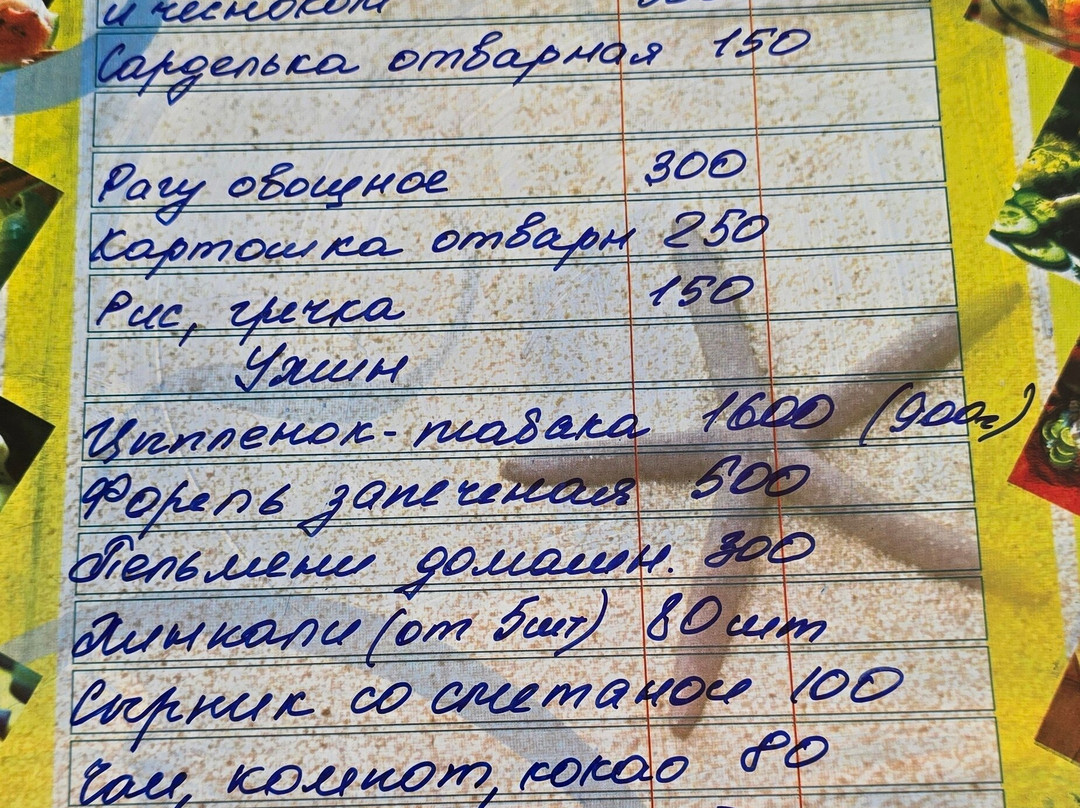 и чесноком
Сарделька отварная 150
Рагу овощное 300
Картошка отварн 250
Рис, гречка 150
Ужин
Цыпленок-табака 1600 (900г)
Форель запеченая 500
Пельмени домашн. 300
Хинкали (от 5шт) 80шт
Сырник со сметаной 100
Чай, компот, какао 80